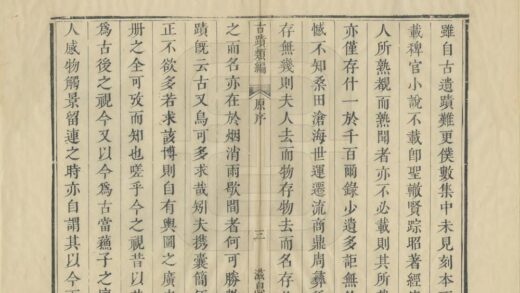 雖自古遺蹟難更僕數集中未見刻本
載稗官小說不載卽聖轍賢踪昭著經
人所熟覩而熟聞者亦不必載則其所
亦僅存什一於千百爾錄少遺多詎無
憾不知桑田滄海世運遷流商鼎周彝
存無幾則夫人去而物存物去而名存
古蹟類編
原序
三
之而名亦在於烟消雨歇間者何可勝
蹟旣云古又烏可多求哉矧夫携囊簡
正不欲多若求該博則自有輿圖之廣
册之全可攷而知也嗟乎今之視昔以
爲古後之視今又以今爲古當蘓子之
人感物觸景留連之時亦自謂其以今